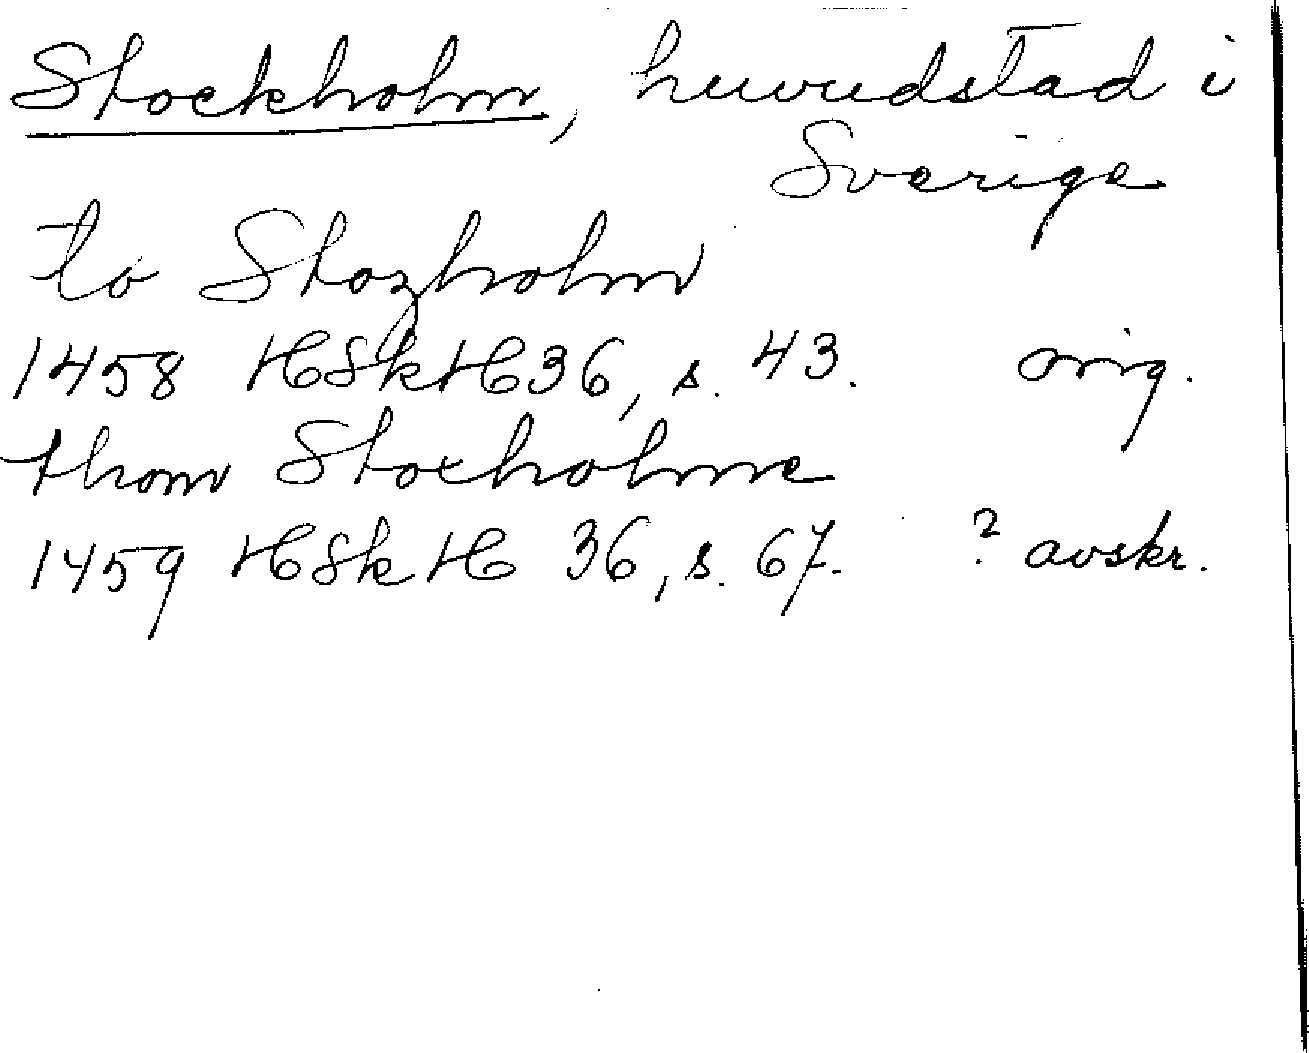 Stockholm, huvudstad i
Sverige
to Stozholm
1458 HSkH 36, s. 43. orig.
thom Stoxholme
1459 HSkH 36, s. 67. ? avskr.